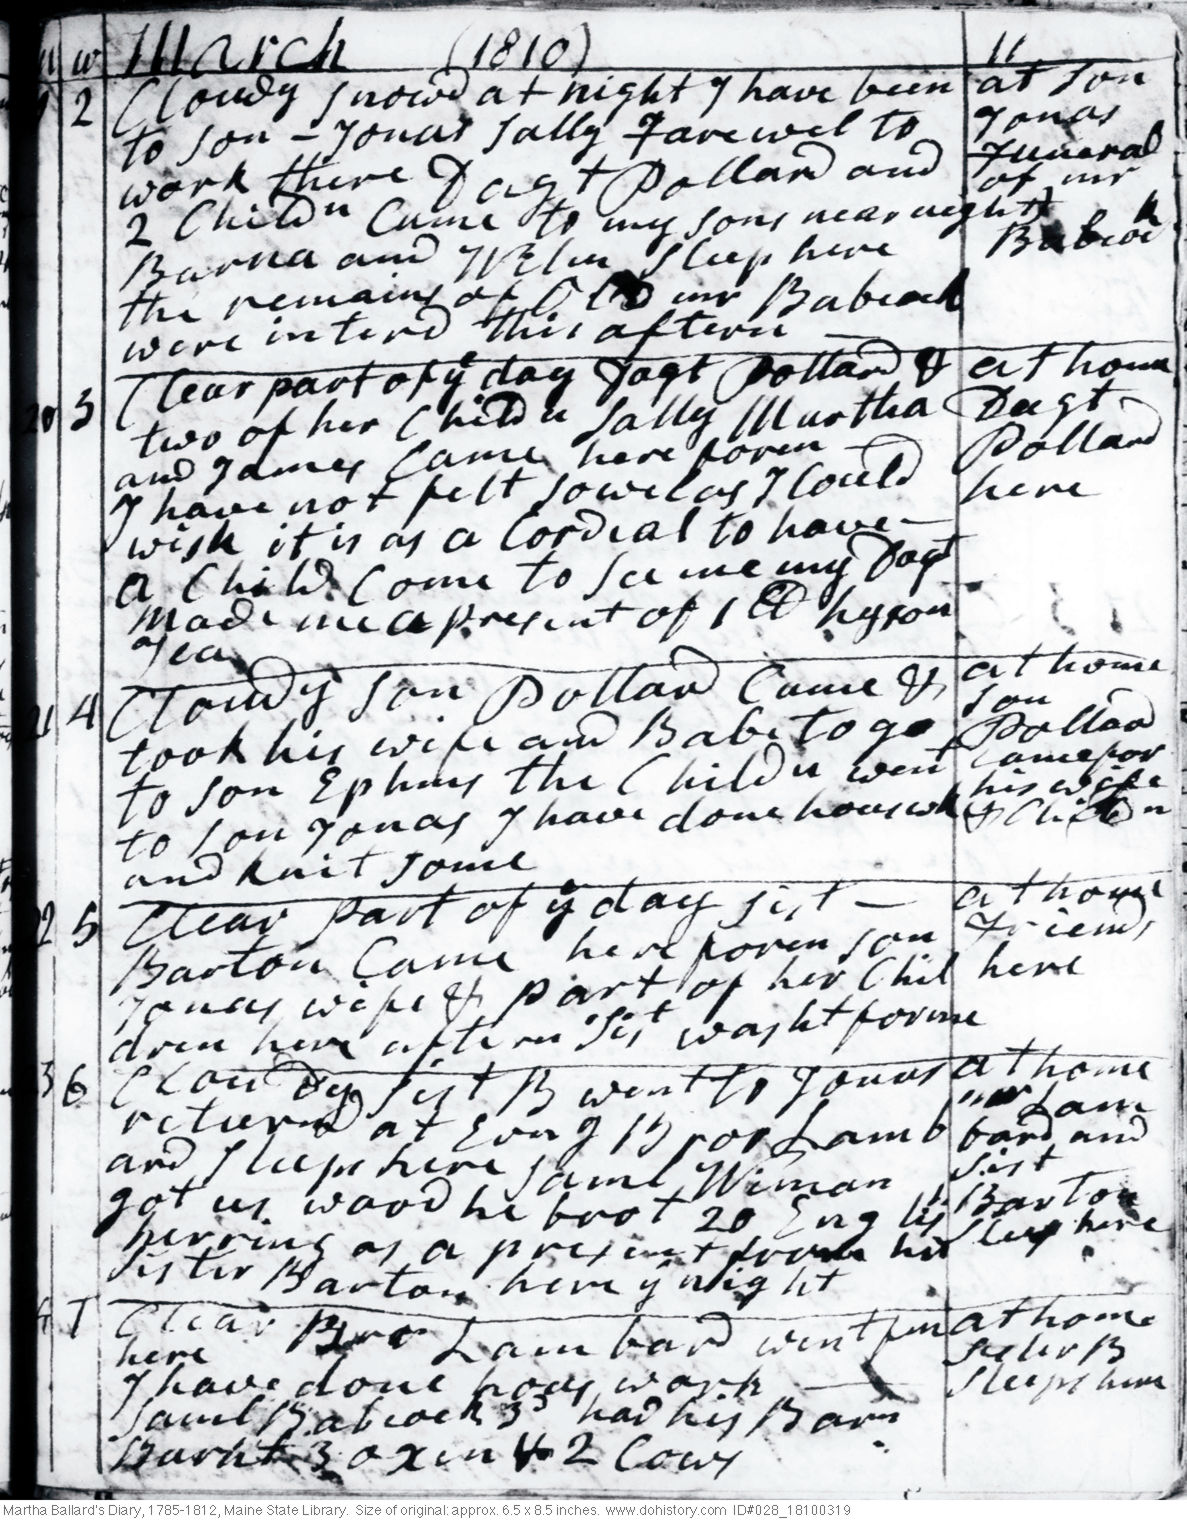 m w March (1810) 11
2 Cloudy snowd at night I have been
to son - Jonas Sally Farewel to
work there Dagt Pollard and
2 Childn Came to my sons near night
Barna and Wm sleep here
the remains of Old mr Babcock
were interd this aftern -
at son
Jonas
Funeral
of mr
Babcock
20 3 Clear part of ÿ day Dagt Pollard &
two of her Childn Sally Martha
and James Came here foren -
I have not felt so wel as I Could
wish it is as a Cordial to have -
a Child Come to see me my Dagt
made me a present of 1 lb hyson
Tea
at home
Dagt
Pollard
here
21 4 Cloudy son Pollard Came &
took his wife and Babe to go
to son Ephms the Childn went
to son Jonas I have done houswk
and knit some
at home
son
Pollard
Came for
his wife
& Childn
22 5 Clear part of ÿ day sist -
Barton Came here foren son
Jonas wife & part of her Chil
dren here aftern Sist washt for me
at home
Friends
here
3 6 Cloudy Sist B went to Jonas
returnd at Evng Bror Lamb
ard sleeps here Saml Wiman
got us wood he brot 20 Englis
herring as a present from his
Sister Barton here ÿ night
at home
mr Lam
bard and
Sist
Barton
sleep here
4 7 Clear Bror Lambard went fm
here
I have done hous work -
Saml Babcock 3d had his Barn
Burnt 3 oxen & 2 Cows
at home
Sister B
sleeps here
Martha Ballard's Diary, 1785-1812, Maine State Library. Size of original: approx. 6.5 x 8.5 inches. www.dohistory.com ID#028_18100319